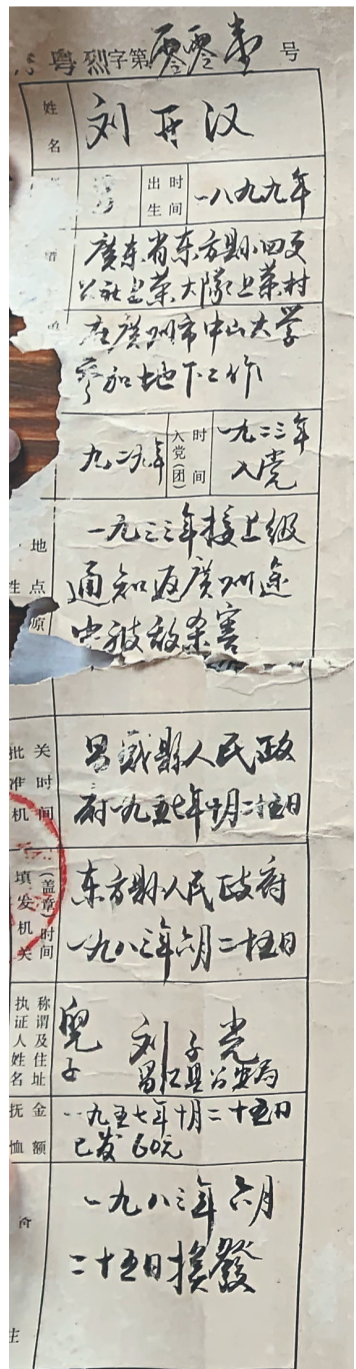 粤烈字第零零壹号
姓名
刘开汉
出生时间
一八九九年
广东省东方县四更
公社上荣大队上荣村
在廣州市中山大学
参加地下工作
九二六年
入党(团)时间
一九二三年
入党
一九三三年接上级
通知返廣州途
中被敌杀害
地点
原
批准机关时间
昌感縣人民政
府一九五七年十月二十五日
填发机关(盖章)时间
东方县人民政府
一九八三年六月二十五日
执证人姓名称谓及住址
兒子
刘子光
昌江县公安局
抚恤金额
一九五七年十月二十五日
已发60元
一九八三年六月
二十五日换發